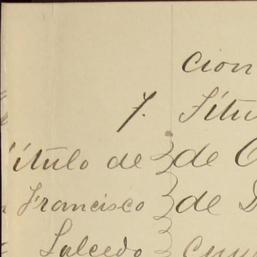 cion
7. Títu
ítulo de de
Francisco de
Salcedo